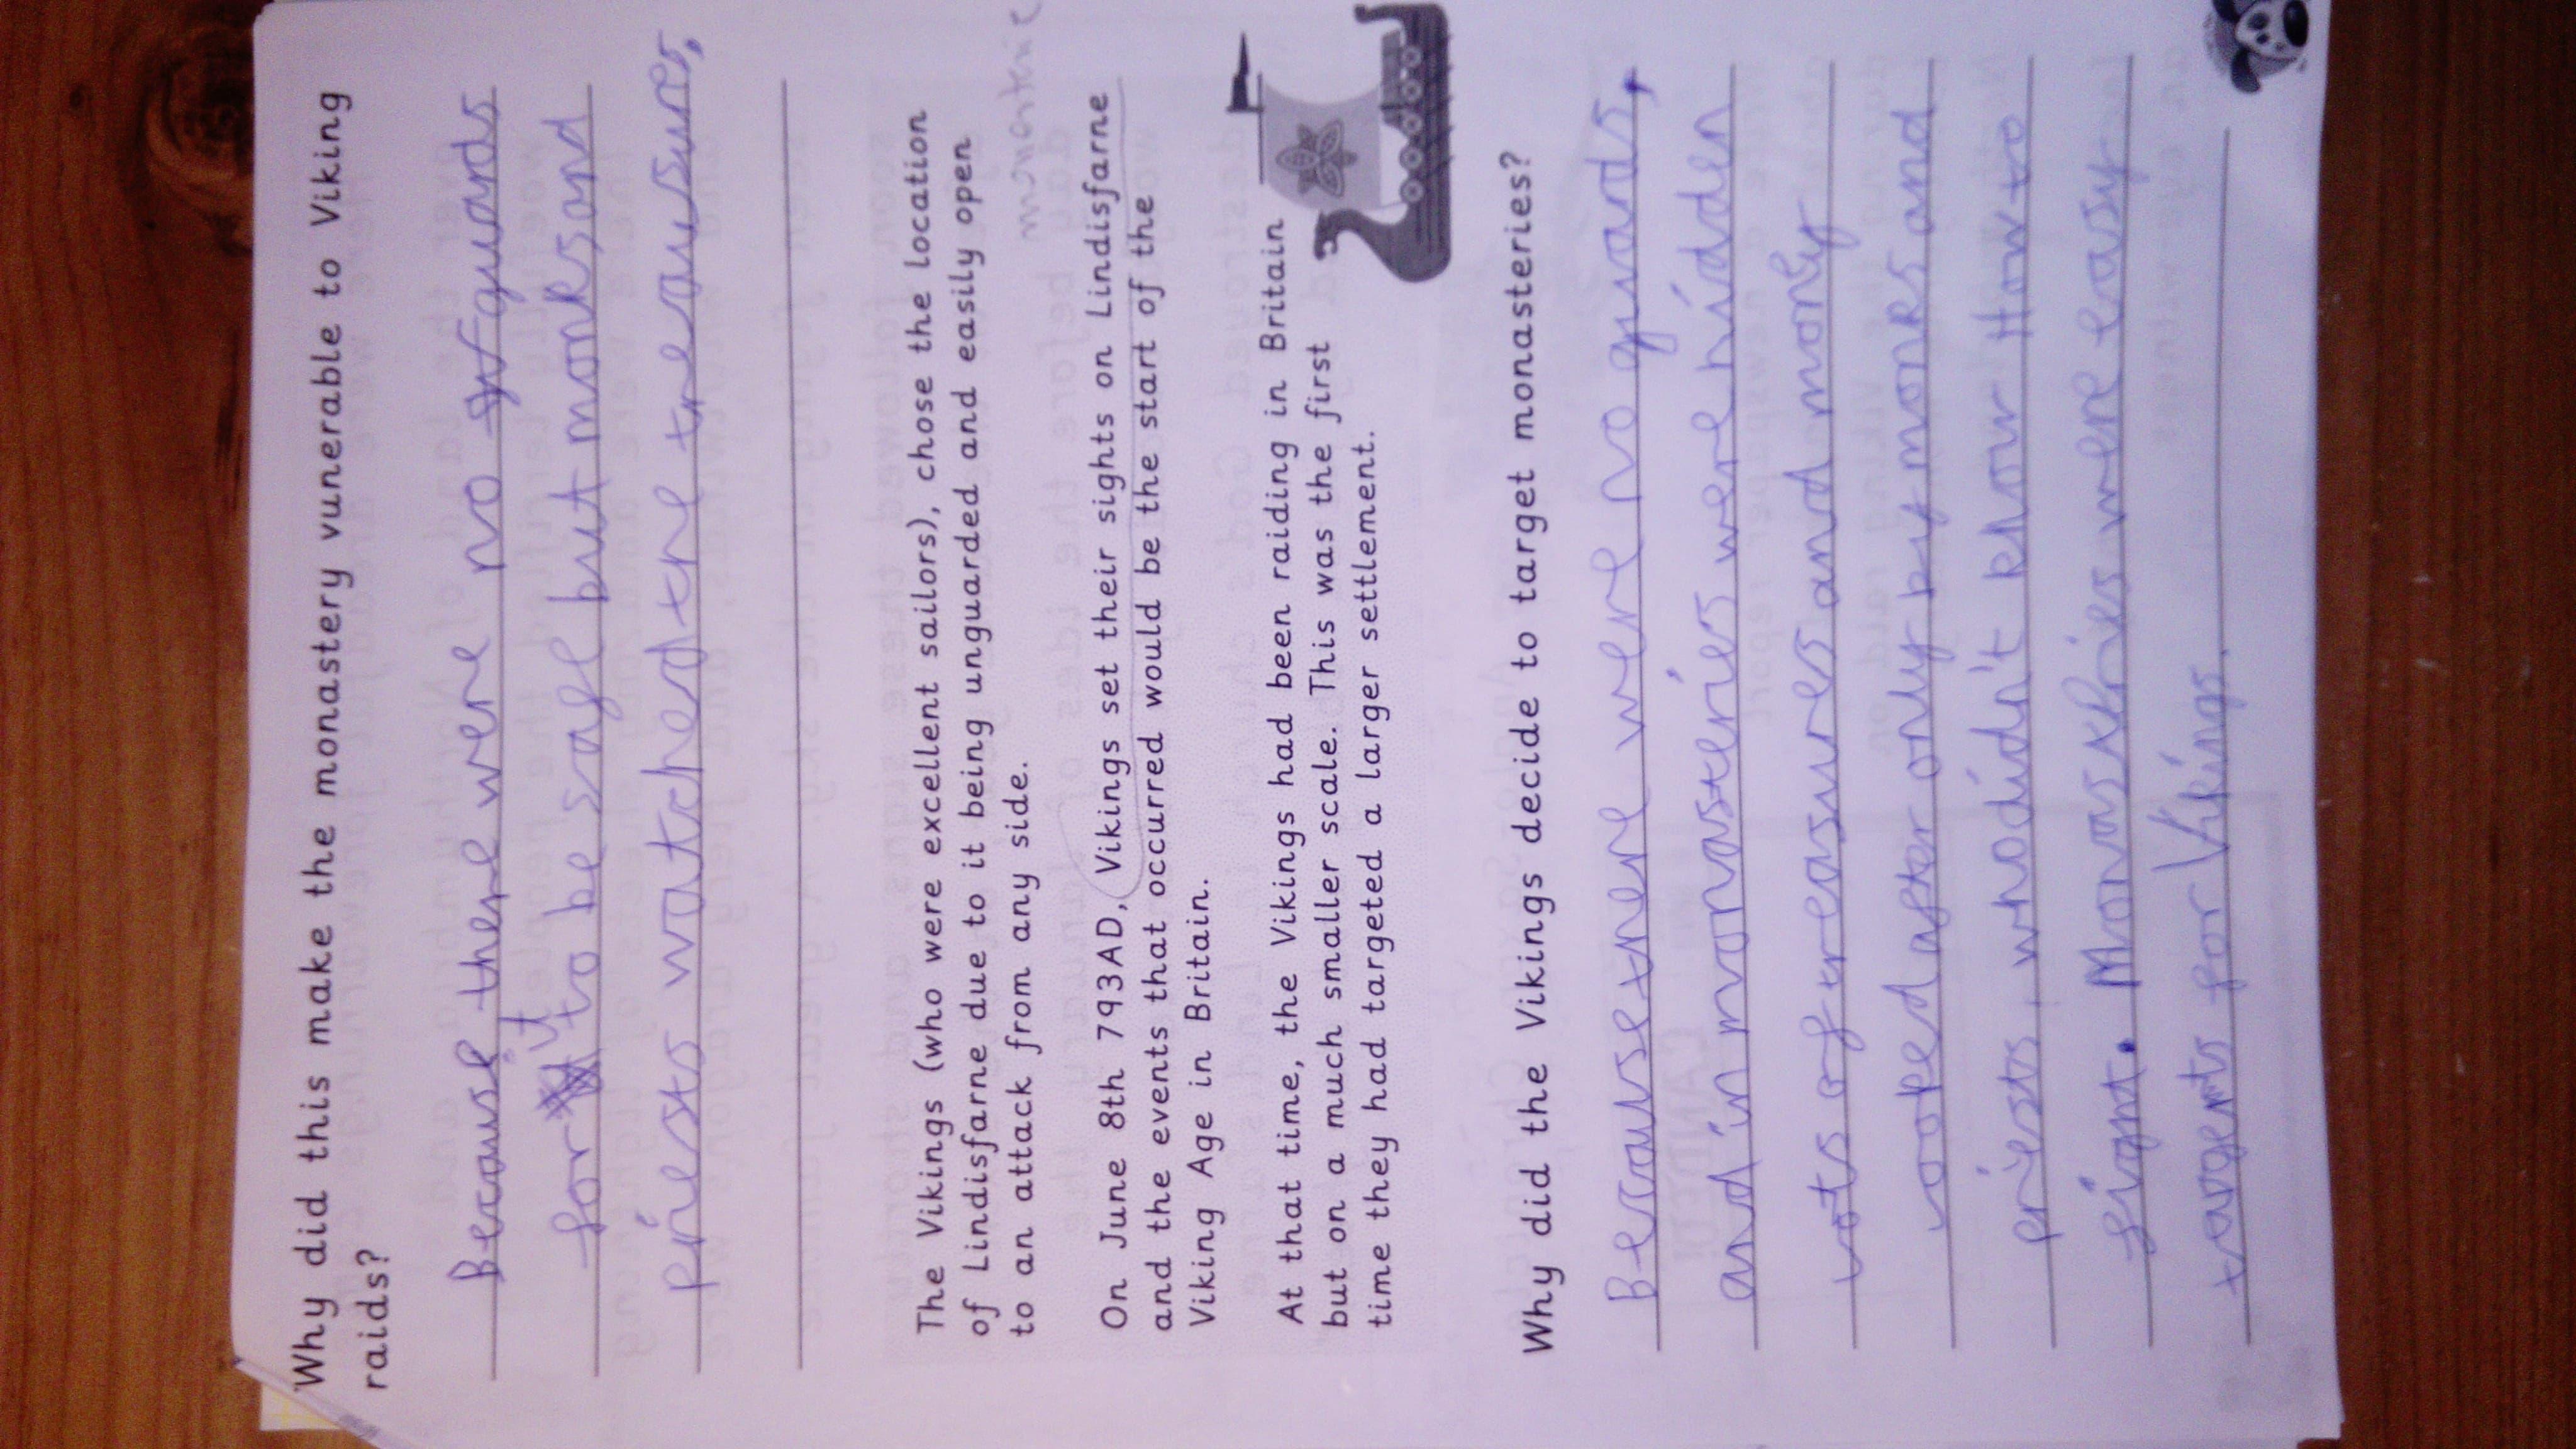 Why did this make the monastery vunerable to Viking
raids?
Because there were no guards
for it to be safe but monks and
priests watched the treausures,
The Vikings (who were excellent sailors), chose the location
of Lindisfarne due to it being unguarded and easily open
to an attack from any side.
On June 8th 793AD, Vikings set their sights on Lindisfarne
and the events that occurred would be the start of the
Viking Age in Britain.
At that time, the Vikings had been raiding in Britain
but on a much smaller scale. This was the first
time they had targeted a larger settlement.
Why did the Vikings decide to target monasteries?
Because there were no guards,
and in monasteries were hidden
lots of treasures and mony
looked after only by monks and
priests, who didn't know How to
fight. Monastries were easy
targets for Vikings.